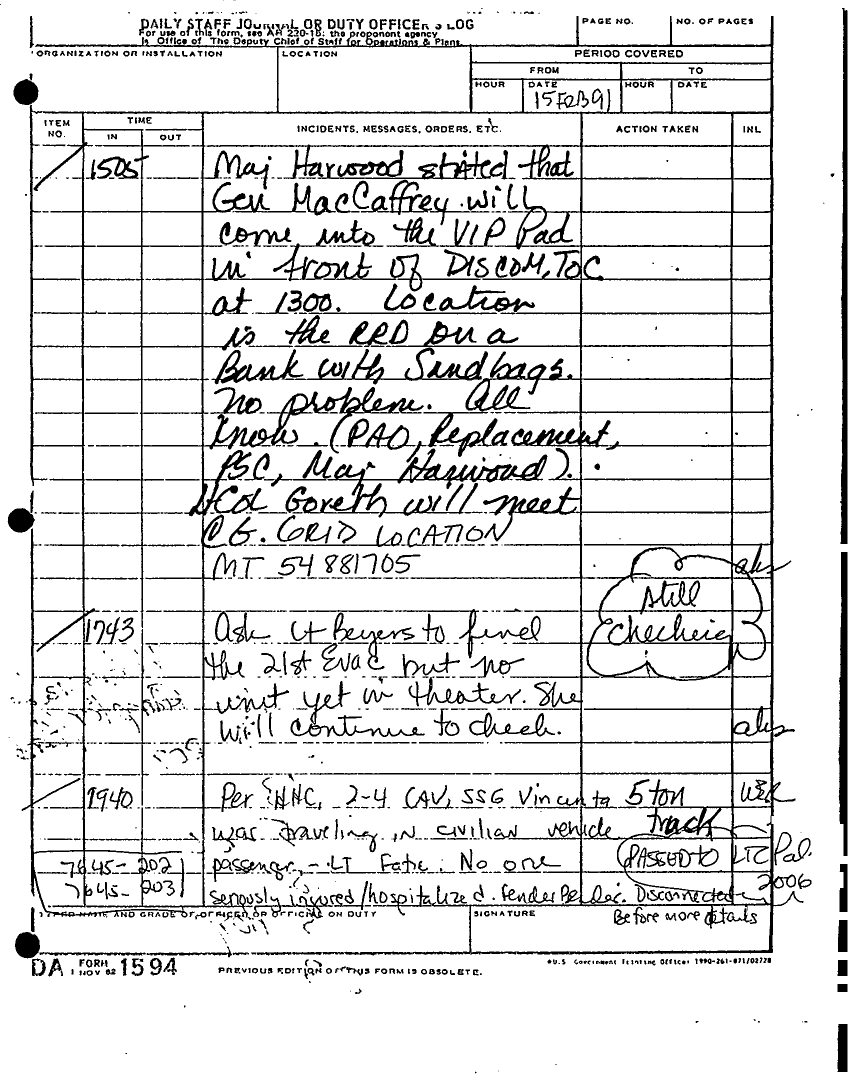 DAILY STAFF JOURNAL OR DUTY OFFICER'S LOG
For use of this form, see AR 220-15; the proponent agency
is Office of The Deputy Chief of Staff for Operations & Plans.
PAGE NO.
NO. OF PAGES
ORGANIZATION OR INSTALLATION
LOCATION
PERIOD COVERED
FROM
TO
HOUR
DATE
HOUR
DATE
15FEB91
ITEM NO.
TIME
IN
OUT
INCIDENTS, MESSAGES, ORDERS, ETC.
ACTION TAKEN
INL
1505
Maj Harwood stated that
Gen MacCaffrey will
come into the VIP Pad
in front of DISCOM, TOC
at 1300. Location
is the RRD on a
Bank with Sandbags.
No problem. All
know. (PAO, Replacement,
PSC, Maj Harwood).
LtCol Goreth will meet
CG. GRID LOCATION
MT 54881705
aks
still
checking
1743
Ask Lt Beyers to find
the 21st Evac but no
unit yet in theater. She
will continue to check.
aks
1940
Per HHC, 2-4 CAV, SSG 5 ton
was traveling in civilian vehicle truck
7645-202
passenger - LT No one
PASSED TO LTC Pal.
7645-203
2006
seriously injured/hospitalized. Fender Bender. Disconnected
Before more details
TYPED NAME AND GRADE OF OFFICER OR OFFICIAL ON DUTY
SIGNATURE
DA FORM 1 NOV 62 1594
PREVIOUS EDITION OF THIS FORM IS OBSOLETE.
*U.S. Government Printing Office: 1990-261-871/02728